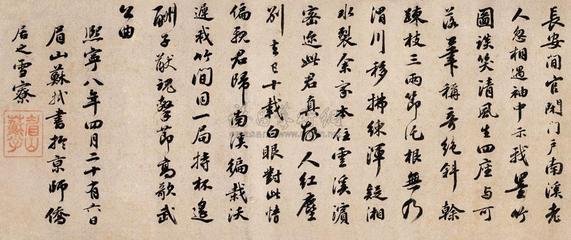 長安閒官閉門戶南溪老
人忽相遇袖中示我墨竹
圖談笑清風生四座與可
落筆稱奇絕斜榦
疎枝三兩節托根無乃
渭川移拂練渾疑湘
水裂余家本住雲溪濱
密邇此君真故人紅塵
別已十載白眼對此惜
偏親君歸南溪編栽
竹間同一局持杯遙
酬子猷魂擊節高歌武
公曲
熙寧八年四月二十有六日
眉山蘇軾書於京師僑
居之雪寮
眉山蘇軾